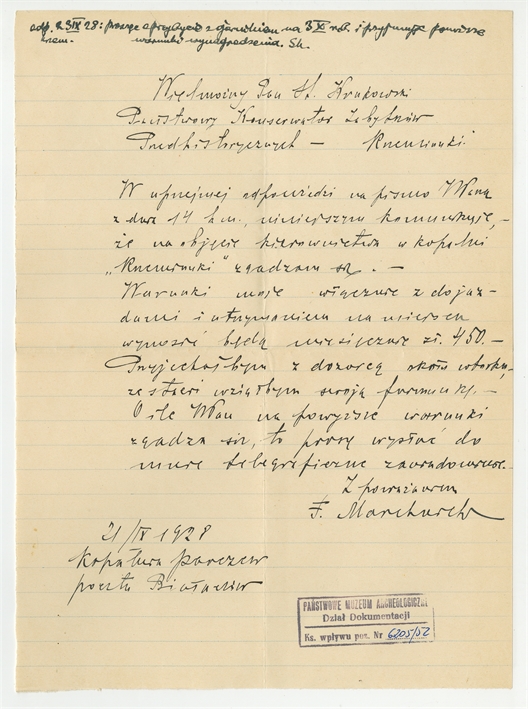 odp. 29 IX 28: proszę o przybycie z Górnikiem na 3 X rb. i przyjmuję powyższe
warunki wynagrodzenia. Sk.
Wielmożny Pan St. Krukowski
Państwowy Konserwator Zabytków
Prehistorycznych – Krzemionki
W uprzejmej odpowiedzi na pismo WPana
z dnia 14 b.m., niniejszym komunikuję, –
że na objęcie kierownictwa w kopalni
„Krzemionki” zgadzam się. –
Warunki moje włącznie z dojaz-
dami i utrzymaniem na miejscu
wynosić będą miesięcznie zł. 450. –
Przyjechałbym z dozorcą
wziąłbym swoją furmankę. –
O ile WPan na powyższe warunki
zgadza się, to proszę wysłać do
mnie telegraficzne zawiadomienie. –
Z poważaniem
F.
21/IX 1928
Kopalnia Parczew
poczta Białaczów
PAŃSTWOWE MUZEUM ARCHEOLOGICZNE
Dział Dokumentacji
Ks. wpływu poz. Nr 6205/52